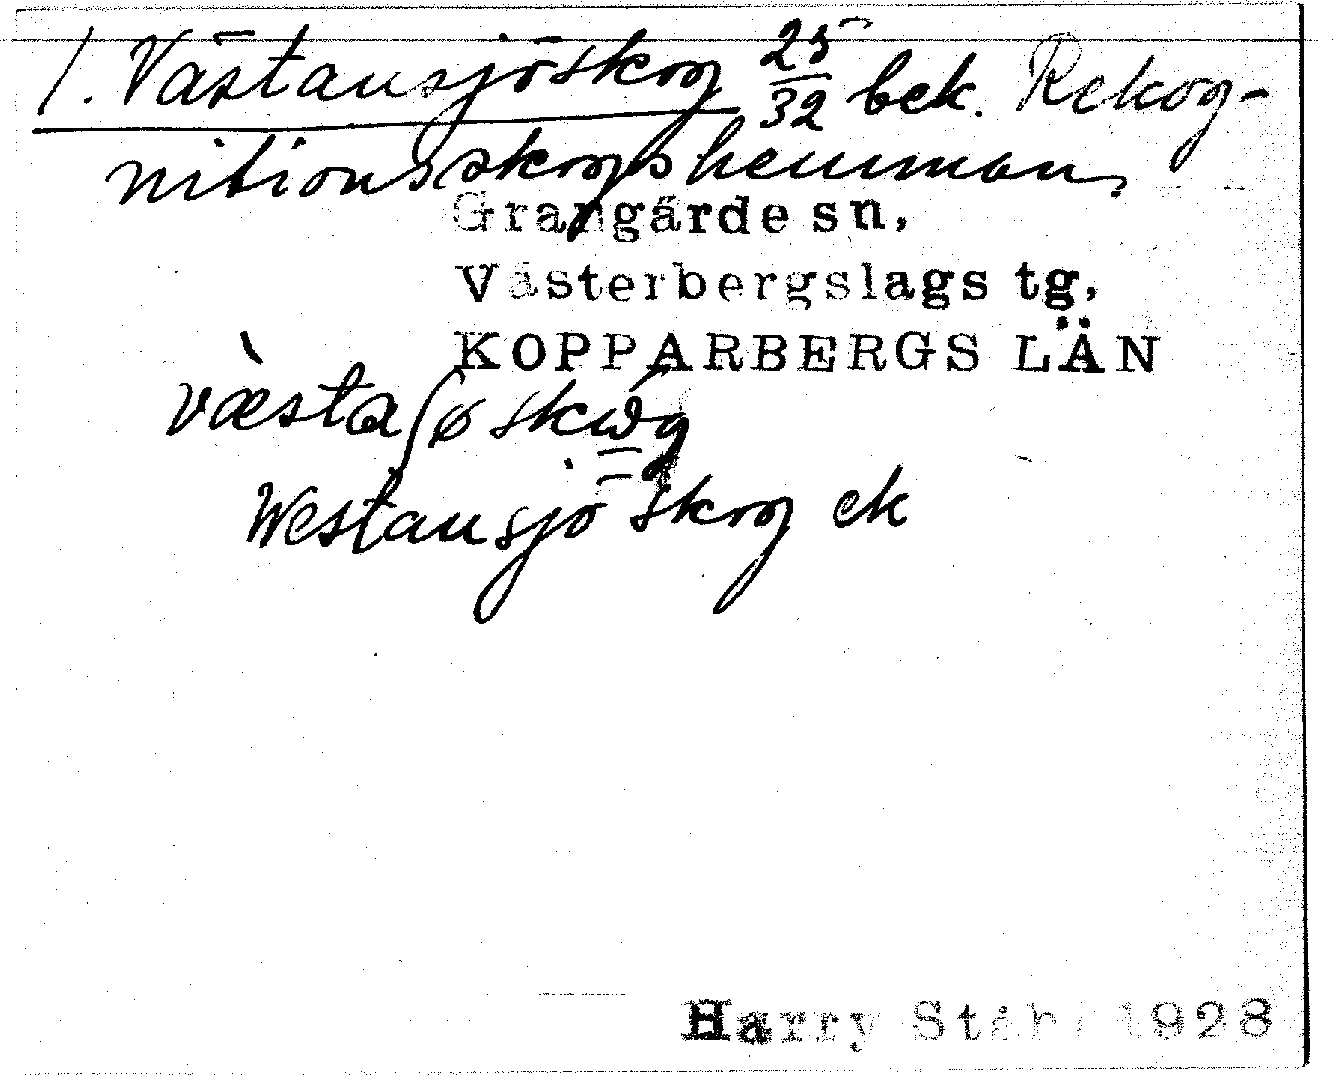 1. Västansjöskog 25/32 bek. Rekog-
nitionsskogshemman.
Grangärde sn,
Västerbergslags tg,
KOPPARBERGS LÄN
væ̀staʃøskώg
Westansjö skog ek
Harry Ståhl 1928